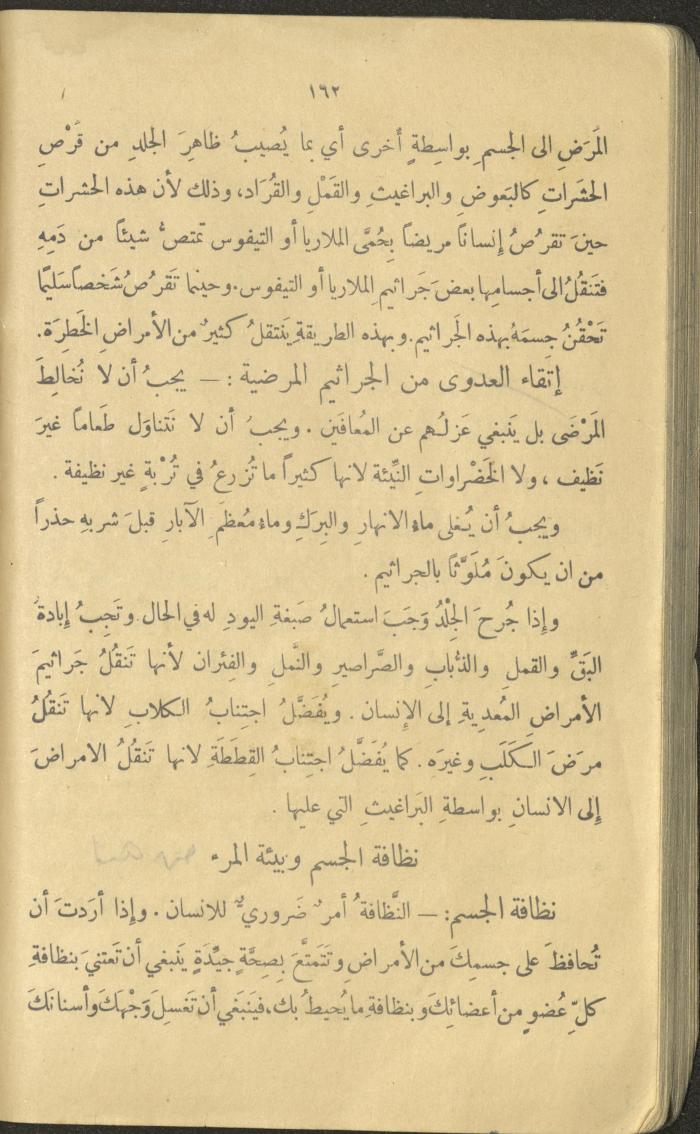 ١٦٢
المَرَضِ الى الجسمِ بواسِطةٍ أُخرى أي بما يُصيبُ ظاهِرَ الجلدِ من قَرْصِ
الحشَراتِ كالبَعوضِ والبراغيثِ والقَمْلِ والقُرَاد، وذلك لأن هذه الحشراتِ
حينَ تقرُصُ إِنساناً مريضاً بِحُمَّى الملاريا أو التيفوس تمتصُّ شيئاً من دَمِهِ
فتَنقُلُ الى أجسامِها بعضَ جَراثيمِ الملاريا أو التيفوس. وحينما تَقرُصُ شَخصاً سَليمًا
تَحْقُنُ جِسمَهُ بهذه الجَراثيم. وبهذه الطريقةِ يَنتقلُ كثيرٌ من الأمراضِ الخَطِرَة.
إتقاء العدوى من الجراثيم المرضية : — يجبُ أن لا نُخالِطَ
المَرْضَى بل يَنبغي عَزلُهم عن المُعافَين . ويجبُ أن لا نَتناوَل طَعاماً غيرَ
نَظيف ، ولا الخَضْراواتِ النِّيئة لانها كثيراً ما تُزرعُ في تُرْبةٍ غير نظيفة .
ويجبُ أن يُغلى ماء الانهارِ والبِرَكِ وماء مُعظَمِ الآبارِ قبلَ شربهِ حذراً
من ان يكونَ مُلَوَّثاً بالجراثيم .
وإِذا جُرحَ الجِلْدُ وَجَبَ استعمالُ صَبغةِ اليودِ له في الحال وتَجِبُ إِبادةُ
البَقِّ والقملِ والذُّبابِ والصَّراصيرِ والنَّملِ والفِئران لأنها تَنقُلُ جَراثيمَ
الأمراضِ المُعديةِ إلى الإِنسان . ويُفَضَّلُ اجتِنابُ الكلابِ لانها تَنقُلُ
مرَضَ الكَلَبِ وغيرَه . كما يُفَضَّلُ اجتِنابُ القِطَطَةِ لانها تَنقُلُ الامراضَ
إِلى الانسانِ بواسطةِ البَراغيثِ التي عليها .
نظافة الجسم وبيئة المرء
نظافة الجسم: — النَّظافةُ أمرٌ ضَروريٌّ للانسان . وإِذا أرَدتَ أن
تُحافظَ على جسمِكَ من الأمراضِ وتَتَمتَّعَ بِصِحَّةٍ جيِّدَةٍ يَنبغي أن تَعتنيَ بنظافةِ
كلِّ عُضوٍ من أعضائِكَ وبنظافةِ ما يُحيطُ بك، فيَنبَغي أن تَغسِلَ وَجْهَكَ وأسنانَكَ